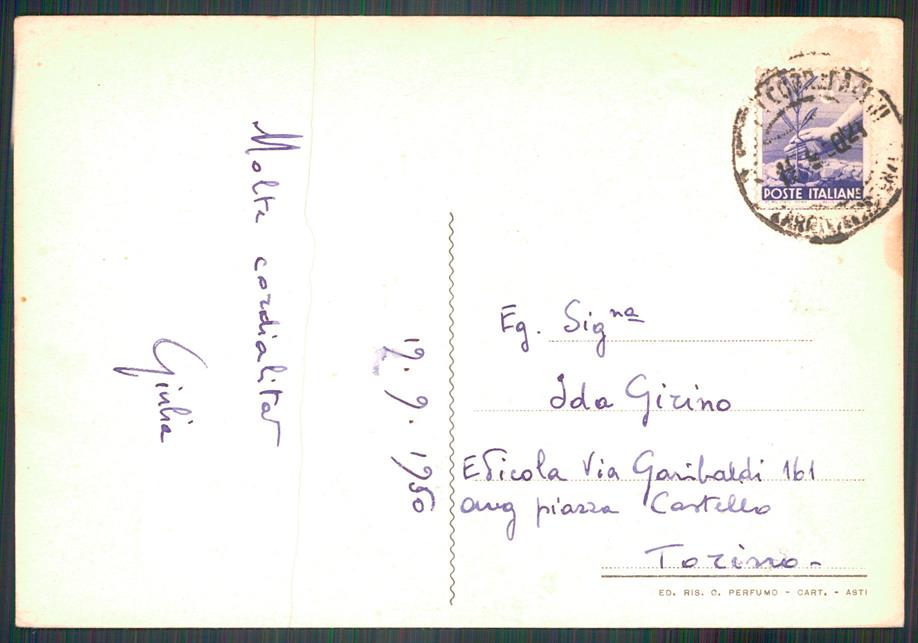 Molte cordialità
Giulia
12. 9. 1950
POSTE ITALIANE
Eg. Sigⁿᵃ
Ida Girino
Edicola Via Garibaldi 161
ang piazza Castello
Torino -
ED. RIS. C. PERFUMO - CART. - ASTI